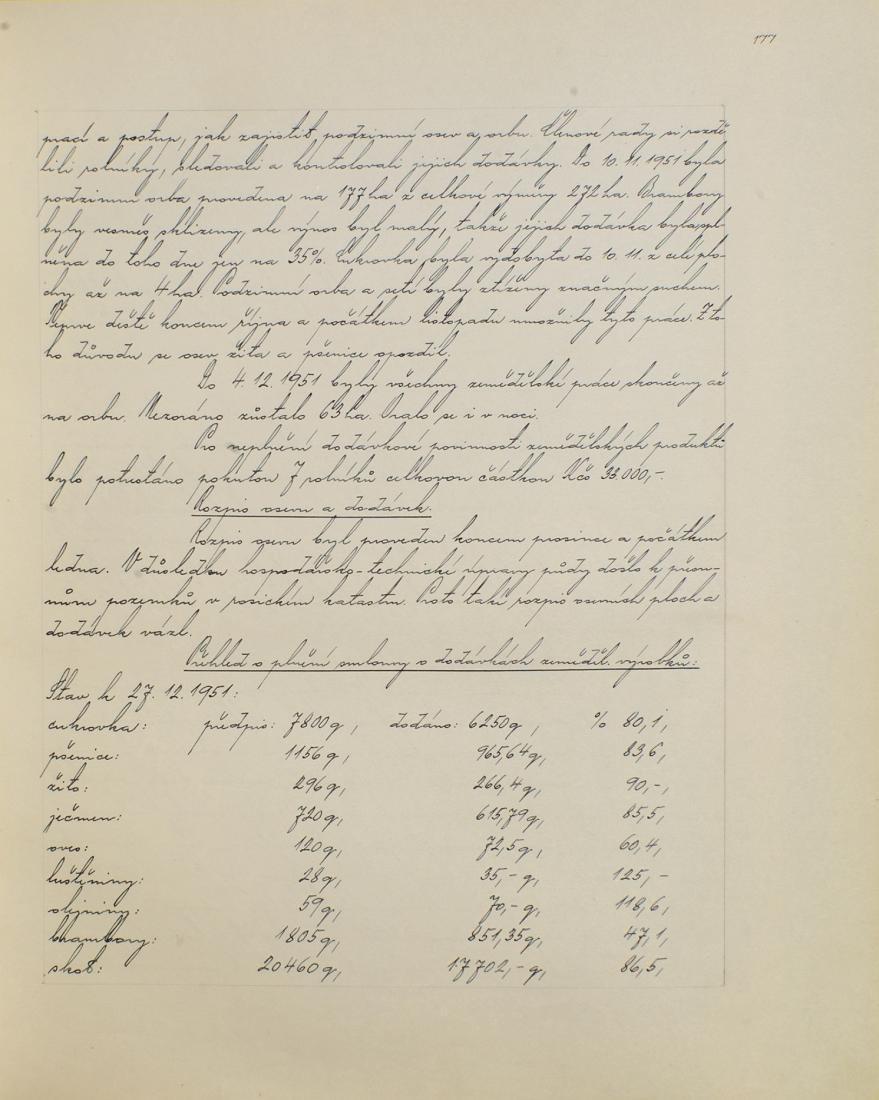 177
prací a postup, jak zajistit podzimní osev a orbu. Členové rady si rozdě
lili rolníky, sledovali a kontrolovali jejich dodávky. Do 10.11.1951 byla
podzimní orba provedena na 177 ha z celkové výměry 272 ha. Brambory
byly vesměs sklizeny, ale výnos byl malý, takže jejich dodávka byla spl-
něna do toho dne jen na 35%. Cukrovka byla vydobyta do 10.11. z celé plo-
chy až na 4 ha. Podzimní orba a setí byly ztíženy značným suchem.
Teprve deště koncem října a počátkem listopadu umožnily tyto práce. Z to-
ho důvodu se osev žita a pšenice opozdil.
Do 4.12.1951 byly všechny zemědělské práce skončeny až
na orbu. Nezoráno zůstalo 63 ha. Oralo se i v noci.
Pro neplnění dodávkové povinnosti zemědělských produktů
bylo potrestáno pokutou 7 rolníků celkovou částkou Kčs 33.000,-.
Rozpis osevu a dodávek.
Rozpis osevu byl proveden koncem prosince a počátkem
ledna. V důsledku hospodářsko-technické úpravy půdy došlo k přesu-
nům pozemků v rosickém katastru. Proto také rozpis osevních ploch a
dodávek vázl.
Přehled o plnění smlouvy o dodávkách zeměděl. výrobků:
Stav k 27.12.1951:
cukrovka: předpis: 7800 q, dodáno: 6250 q, % 80,1,
pšenice: 1156 q, 965,64 q, 83,6,
žito: 296 q, 266,4 q, 90,-,
ječmen: 720 q, 615,79 q, 85,5,
oves: 120 q, 72,5 q, 60,4,
luštěniny: 28 q, 35,- q, 125,-
olejniny: 59 q, 70,- q, 118,6,
brambory: 1805 q, 851,35 q, 47,1,
skot: 20460 q, 17702,- q, 86,5,